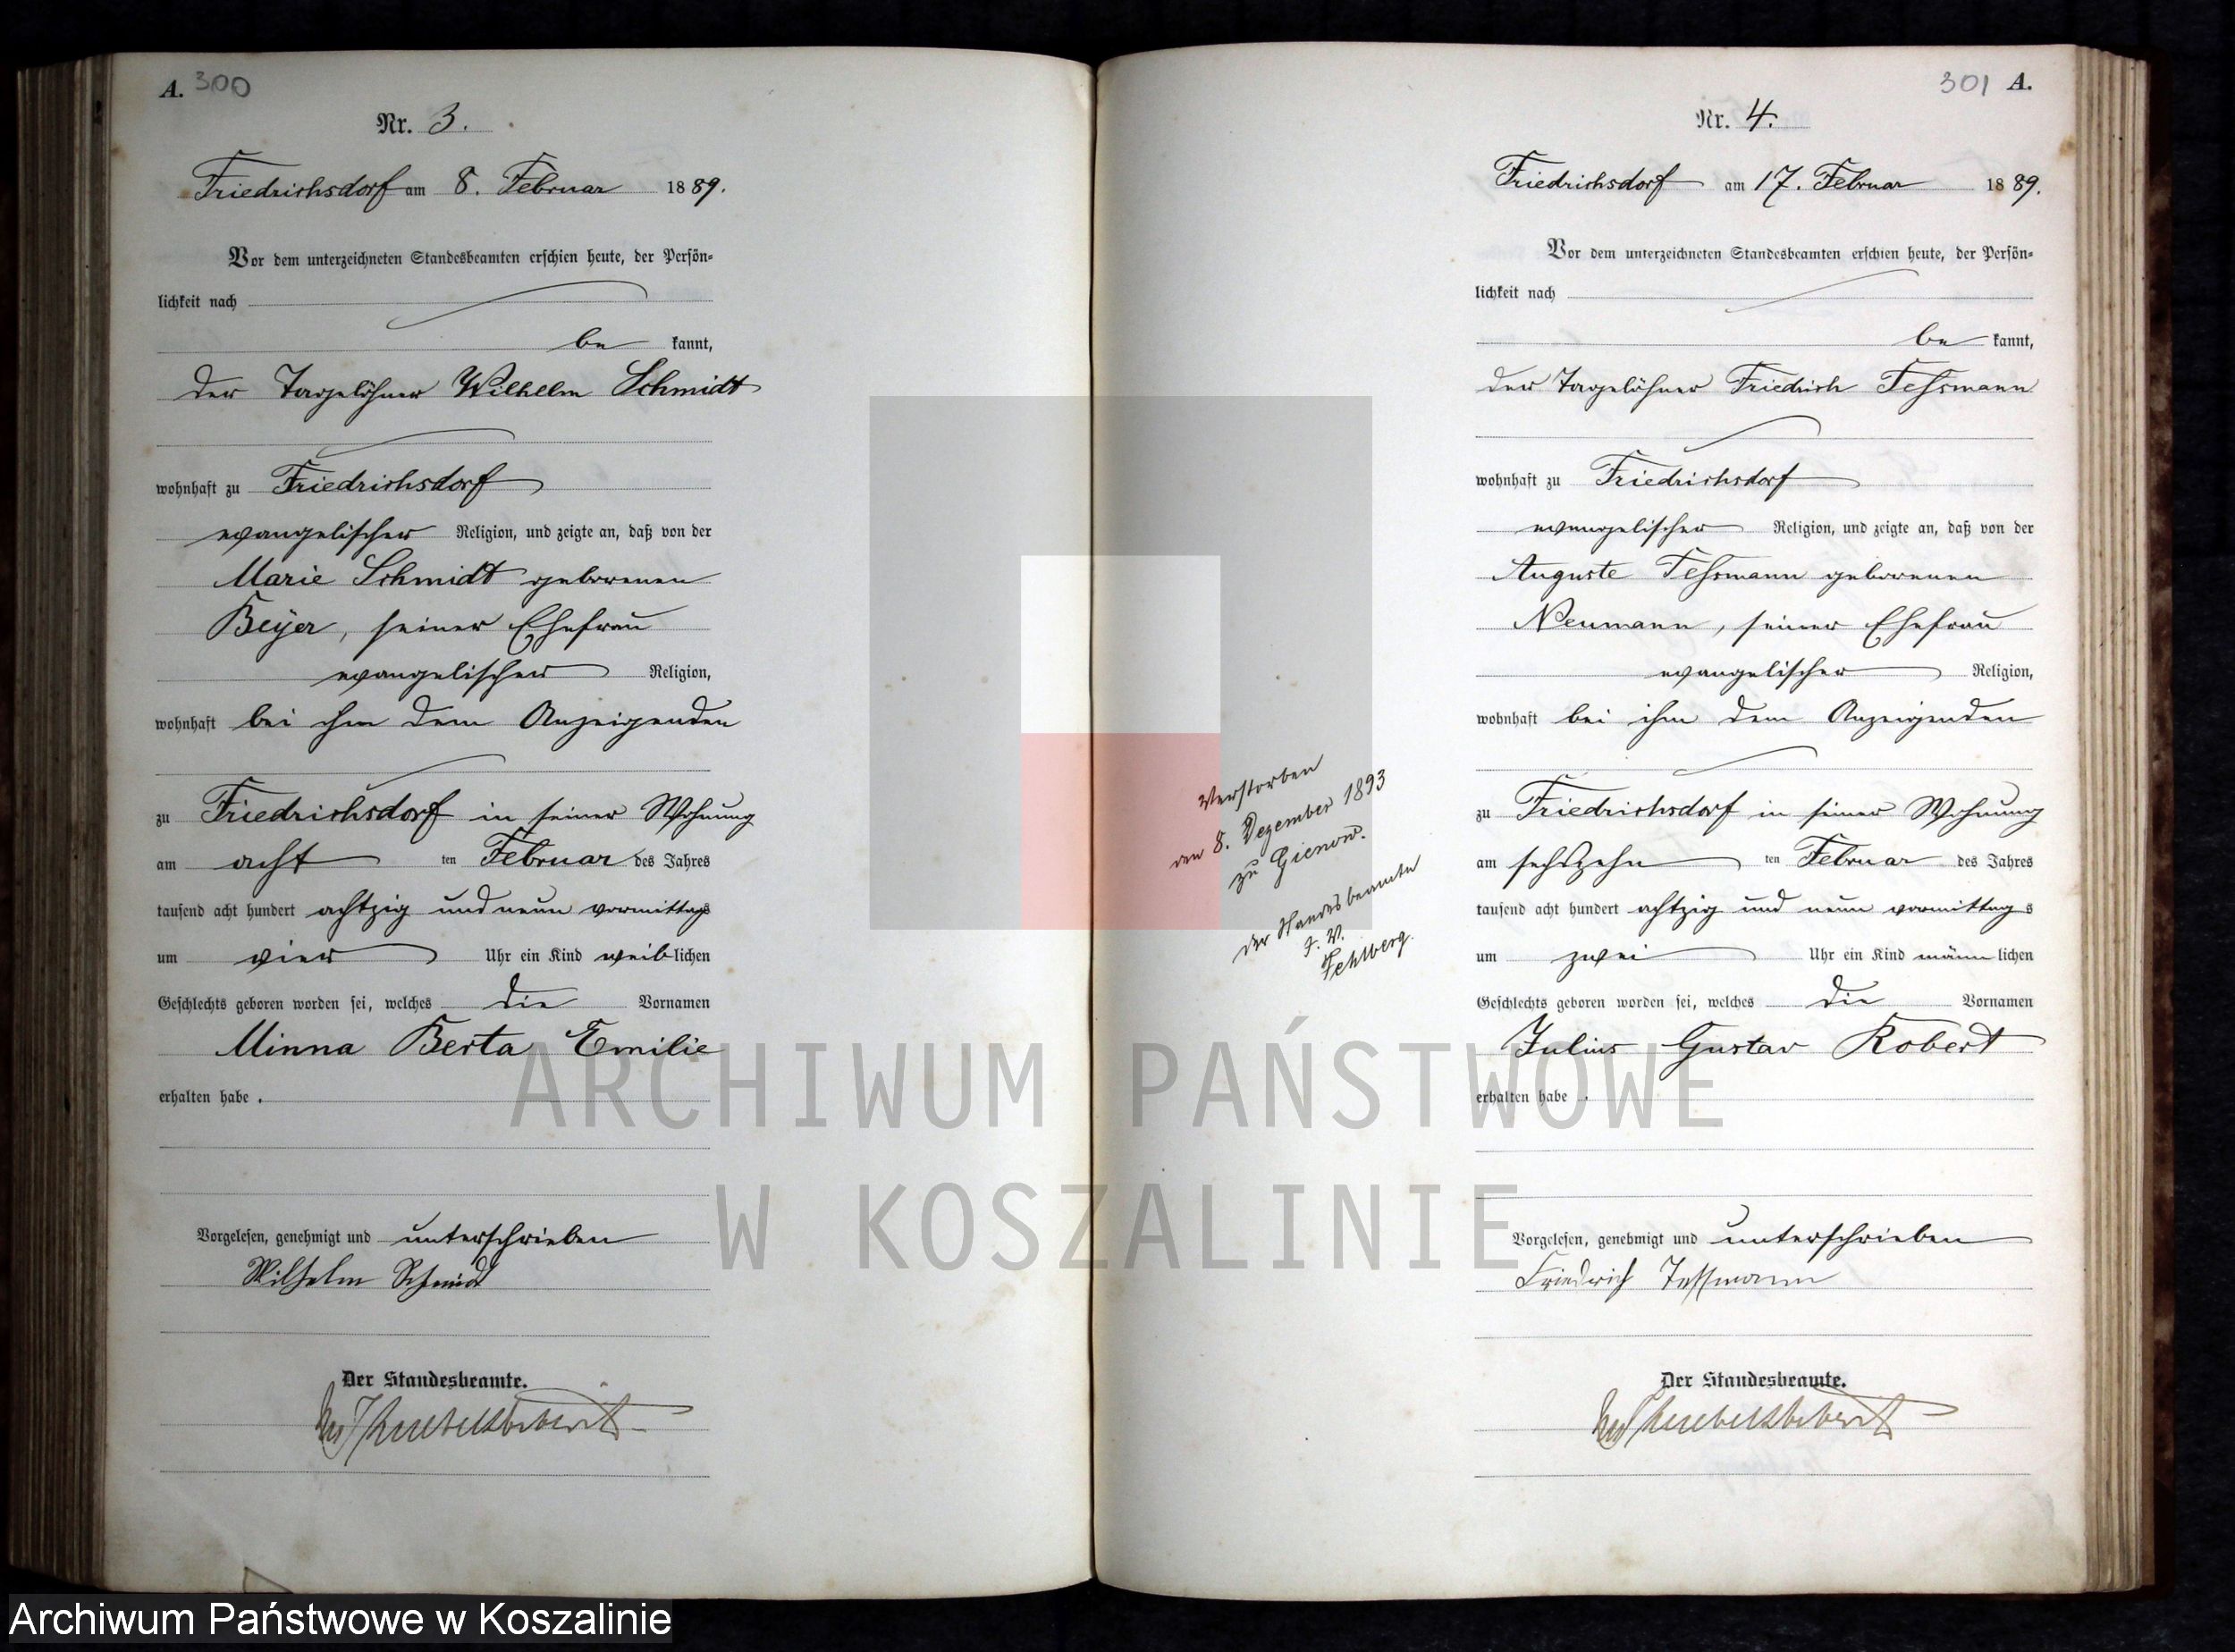 A. 300
Nr. 3.
Friedrichsdorf am 8. Februar 1889.
Vor dem unterzeichneten Standesbeamten erschien heute, der Persön=
lichkeit nach
be kannt,
der Tagelöhner Wilhelm Schmidt
wohnhaft zu Friedrichsdorf
evangelischer Religion, und zeigte an, daß von der
Marie Schmidt geborenen
Beÿer, seiner Ehefrau
evangelischer Religion,
wohnhaft bei ihm dem Anzeigenden
zu Friedrichsdorf in seiner Wohnung
am acht ten Februar des Jahres
tausend acht hundert achtzig und neun vormittags
um vier Uhr ein Kind weiblichen
Geschlechts geboren worden sei, welches die Vornamen
Minna Berta Emilie
erhalten habe.
Vorgelesen, genehmigt und unterschrieben
Wilhelm Schmidt
Der Standesbeamte.
301 A.
Nr. 4.
Friedrichsdorf am 17. Februar 1889.
Vor dem unterzeichneten Standesbeamten erschien heute, der Persön=
lichkeit nach
be kannt,
der Tagelöhner Friedrich Teßmann
wohnhaft zu Friedrichsdorf
evangelischer Religion, und zeigte an, daß von der
Auguste Teßmann geborenen
Neumann, seiner Ehefrau
evangelischer Religion,
wohnhaft bei ihm dem Anzeigenden
zu Friedrichsdorf in seiner Wohnung
am sechszehn ten Februar des Jahres
tausend acht hundert achtzig und neun vormittags
um zwei Uhr ein Kind männlichen
Geschlechts geboren worden sei, welches die Vornamen
Julius Gustav Robert
erhalten habe.
Vorgelesen, genehmigt und unterschrieben
Friedrich Tessmann
Der Standesbeamte.
Verstorben
den 8. Dezember 1893
zu Gienow.
Der Standesbeamte
J. V.
Fehlberg.
ARCHIWUM PAŃSTWOWE
W KOSZALINIE
Archiwum Państwowe w Koszalinie